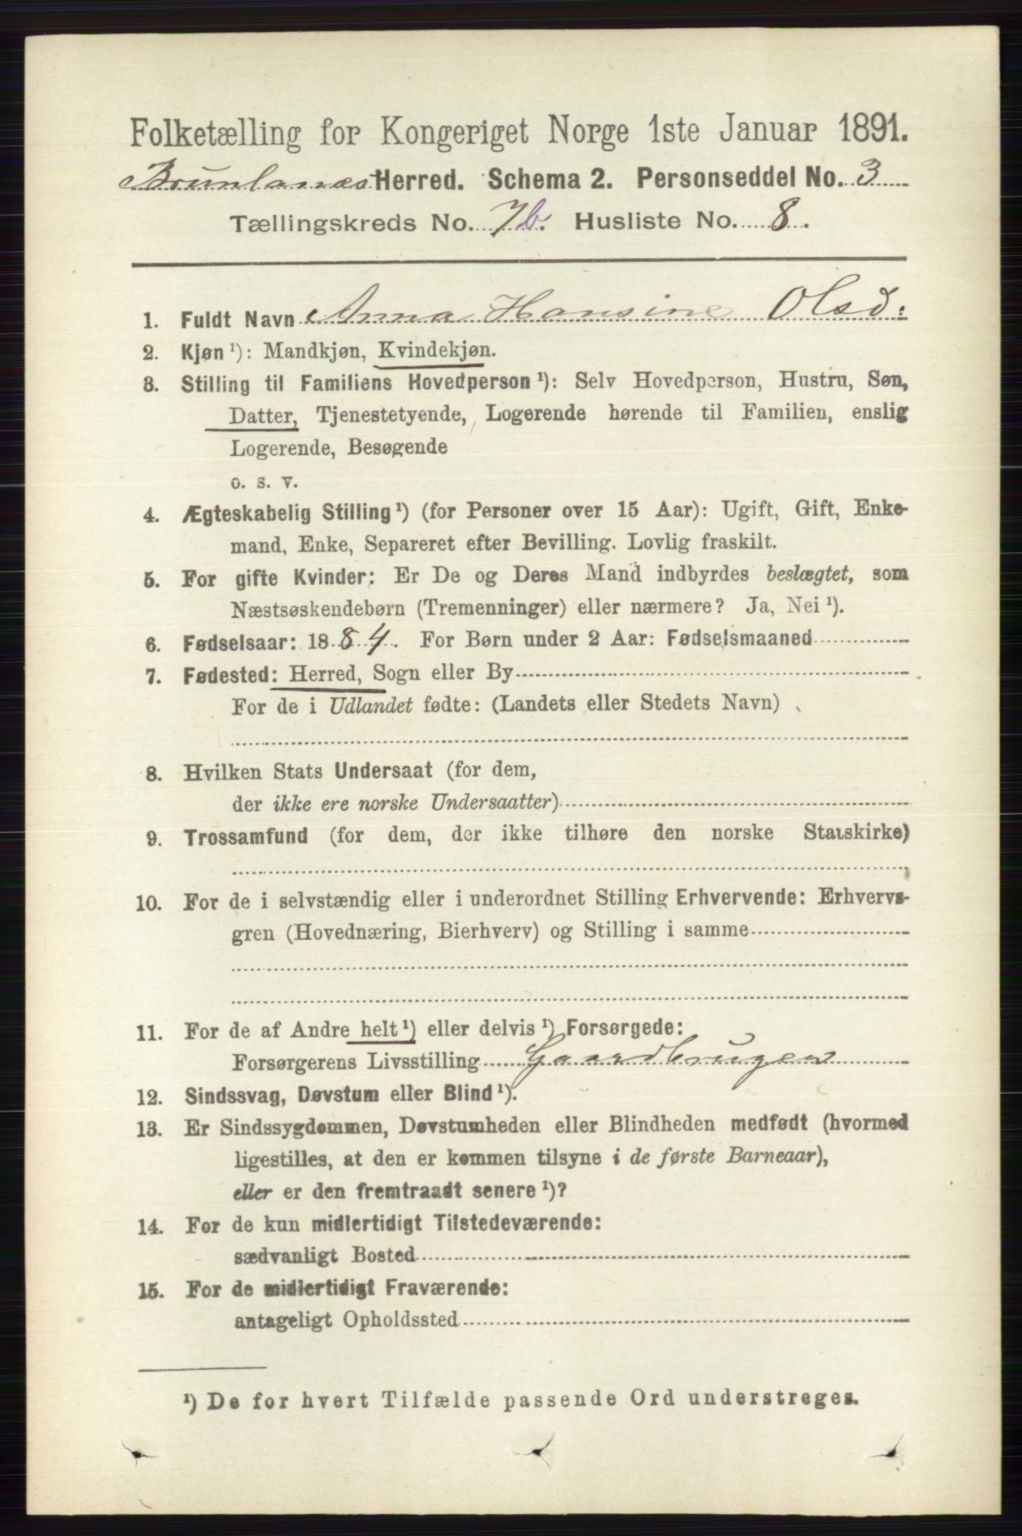 Folketælling for Kongeriget Norge 1ste Januar 1891.
Brunlanæs Herred. Schema 2. Personseddel No. 3
Tællingskreds No. 7b. Husliste No. 8.
1. Fuldt Navn Anna Hansine Olsd:
2. Kjøn¹): Mandkjøn, Kvindekjøn.
3. Stilling til Familiens Hovedperson¹): Selv Hovedperson, Hustru, Søn,
Datter, Tjenestetyende, Logerende hørende til Familien, enslig
Logerende, Besøgende
o. s. v.
4. Ægteskabelig Stilling¹) (for Personer over 15 Aar): Ugift, Gift, Enke-
mand, Enke, Separeret efter Bevilling. Lovlig fraskilt.
5. For gifte Kvinder: Er De og Deres Mand indbyrdes beslægtet, som
Næstsøskendebørn (Tremenninger) eller nærmere? Ja, Nei¹).
6. Fødselsaar: 1884. For Børn under 2 Aar: Fødselsmaaned
7. Fødested: Herred, Sogn eller By
For de i Udlandet fødte: (Landets eller Stedets Navn)
8. Hvilken Stats Undersaat (for dem,
der ikke ere norske Undersaatter)
9. Trossamfund (for dem, der ikke tilhøre den norske Statskirke)
10. For de i selvstændig eller i underordnet Stilling Erhvervende: Erhvervs-
gren (Hovednæring, Bierhverv) og Stilling i samme
11. For de af Andre helt¹) eller delvis¹) Forsørgede:
Forsørgerens Livsstilling Gaardbruger
12. Sindssvag, Døvstum eller Blind¹).
13. Er Sindssygdommen, Døvstumheden eller Blindheden medfødt (hvormed
ligestilles, at den er kommen tilsyne i de første Barneaar),
eller er den fremtraadt senere¹)?
14. For de kun midlertidigt Tilstedeværende:
sædvanligt Bosted
15. For de midlertidigt Fraværende:
antageligt Opholdssted
¹) De for hvert Tilfælde passende Ord understreges.